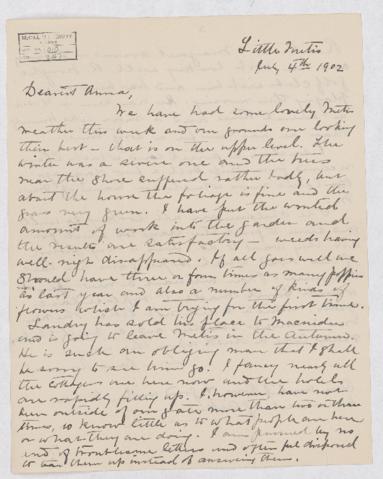 Little Metis
July 4th 1902
Dearest Anna,
We have had some lovely Metis
weather this week and our grounds are looking
their best - that is on the upper level. The
winter was a severe one and the trees
near the shore suffered rather badly, but
about the house the foliage is fine and the
grass very green. I have put the wonted
amount of work into the garden and
the results are satisfactory - weeds having
well-nigh disappeared. If all goes well we
should have three or four times as many poppies
as last year and also a number of kinds of
flowers which I am trying for the first time.
Landry has sold his place to Macnider
and is going to leave Metis in the Autumn.
He is such an obliging man that I shall
be sorry to see him go. I fancy nearly all
the cottagers are here now and the hotels
are rapidly filling up. I, however have not
been outside of our gate more than two or three
times, so know little as to what people are here
or what they are doing. I am pursued by no
end of troublesome letters and often feel disposed
to burn them up instead of answering them.